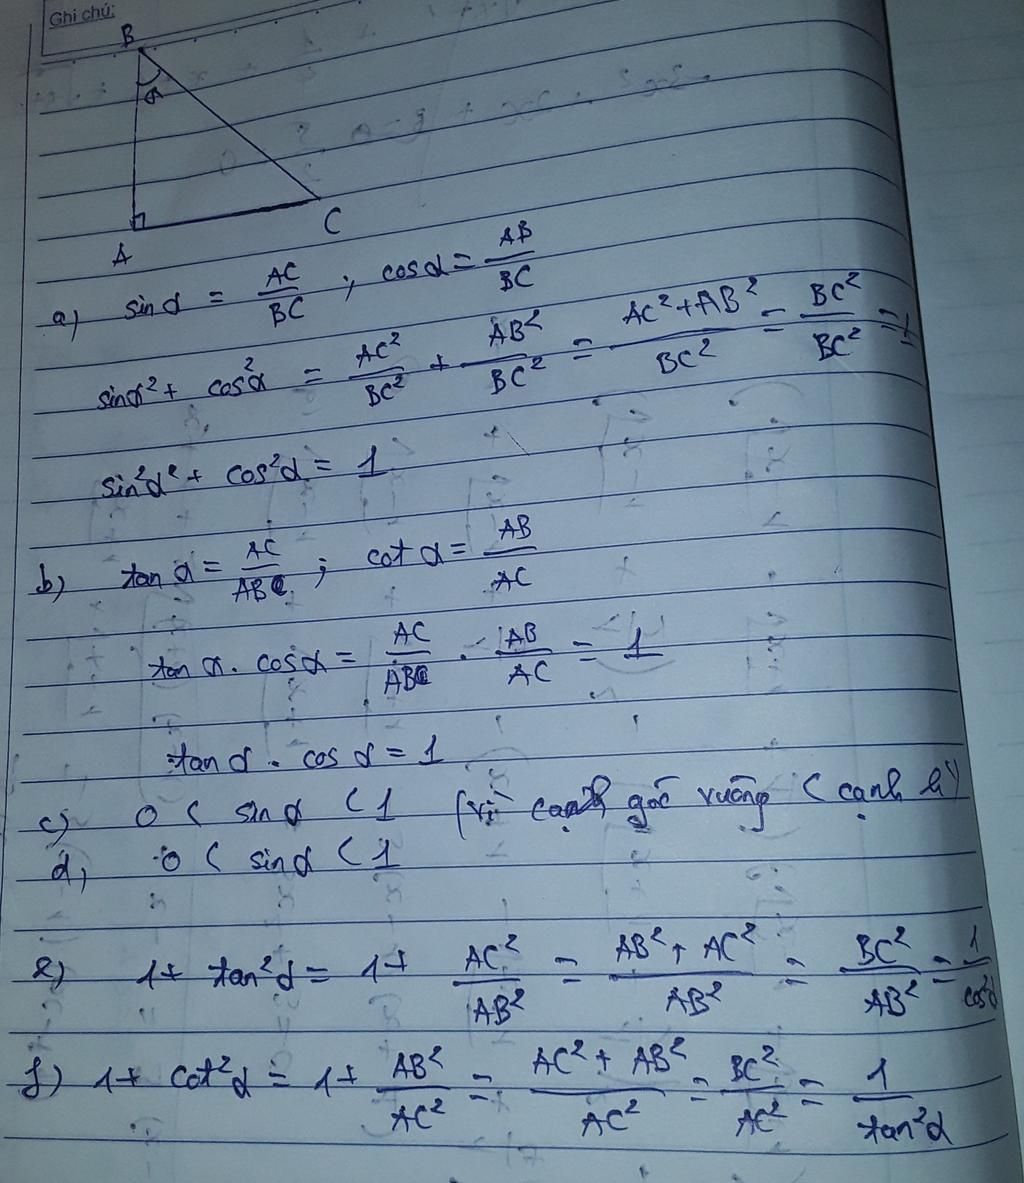 Ghi chú:
B
α
A
C
a) sinα = AC/BC ; cosα = AB/BC
sinα² + cos²α = AC²/BC² + AB²/BC² = (AC² + AB²)/BC² = BC²/BC² = 1
sin²α² + cos²α = 1
b) tan α = AC/AB ; cot α = AB/AC
tan α . cosα = AC/AB . AB/AC = 1
tanα . cos α = 1
c) 0 < sin α < 1 (vì cạnh góc vuông < cạnh h)
d, 0 < sinα < 1
e) 1 + tan²α = 1 + AC²/AB² = (AB² + AC²)/AB² = BC²/AB² = 1/cos²α
f) 1 + cot²α = 1 + AB²/AC² = (AC² + AB²)/AC² = BC²/AC² = 1/tan²α